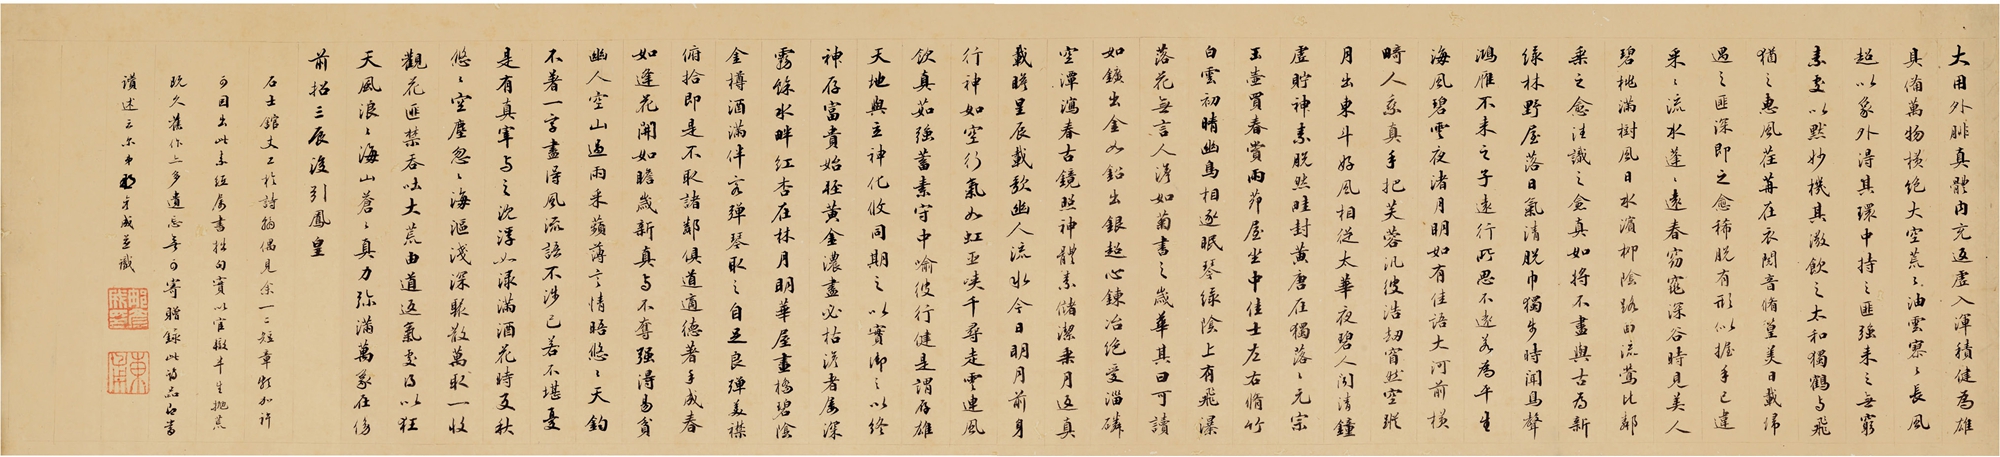 大用外腓真體內充返虛入渾積健為雄
具備萬物橫絕大空荒〻油雲寥〻長風
超以象外得其環中持之匪強來之無窮
素處以默妙機其微飲之太和獨鶴與飛
猶之惠風荏苒在衣閱音脩篁美曰載歸
遇之匪深即之愈稀脫有形似握手已違
采〻流水蓬〻遠春窈窕深谷時見美人
碧桃滿樹風日水濱柳陰路曲流鶯比鄰
乘之愈往識之愈真如將不盡與古為新
綠林野屋落日氣清脫巾獨步時聞鳥聲
鴻雁不來之子遠行所思不遠若為平生
海風碧雲夜渚月明如有佳語大河前橫
畸人乘真手把芙蓉汎彼浩劫窅然空蹤
月出東斗好風相從太華夜碧人聞清鐘
虛貯神素脫然畦封黃唐在獨落〻元宗
玉壺買春賞雨茆屋坐中佳士左右脩竹
白雲初晴幽鳥相逐眠琴綠陰上有飛瀑
落花無言人澹如菊書之歲華其曰可讀
如鑛出金如鉛出銀超心鍊冶絕愛淄磷
空潭瀉春古鏡照神體素儲潔乘月返真
載瞻星辰載歌幽人流水今日明月前身
行神如空行氣如虹巫峽千尋走雲連風
飲真茹強蓄素守中喻彼行健是謂存雄
天地與立神化攸同期之以實御之以終
神存富貴始輕黃金濃盡必枯淡者屢深
霧餘水畔紅杏在林月明華屋畫橋碧陰
金樽酒滿伴客彈琴取之自足良殫美襟
俯拾即是不取諸鄰俱道適德著手成春
如逢花開如瞻歲新真與不奪強得易貧
幽人空山過雨采蘋薄言情晤悠〻天鈞
不著一字盡得風流語不涉己若不堪憂
是有真宰與之沈浮如淥滿酒花時反秋
悠〻空塵忽〻海漚淺深聚散萬取一收
觀花匪禁吞吐大荒由道返氣處得以狂
天風浪〻海山蒼〻真力彌滿萬象在傍
前招三辰後引鳳皇
石士館丈工於詩翰偶見余一二短章頗加許
可因出此素紙屬書拙句實以宦轍半生拋荒
既久舊作亦多遺忘無可寄贈錄此詩品即當
讚述云爾弟才咸並識